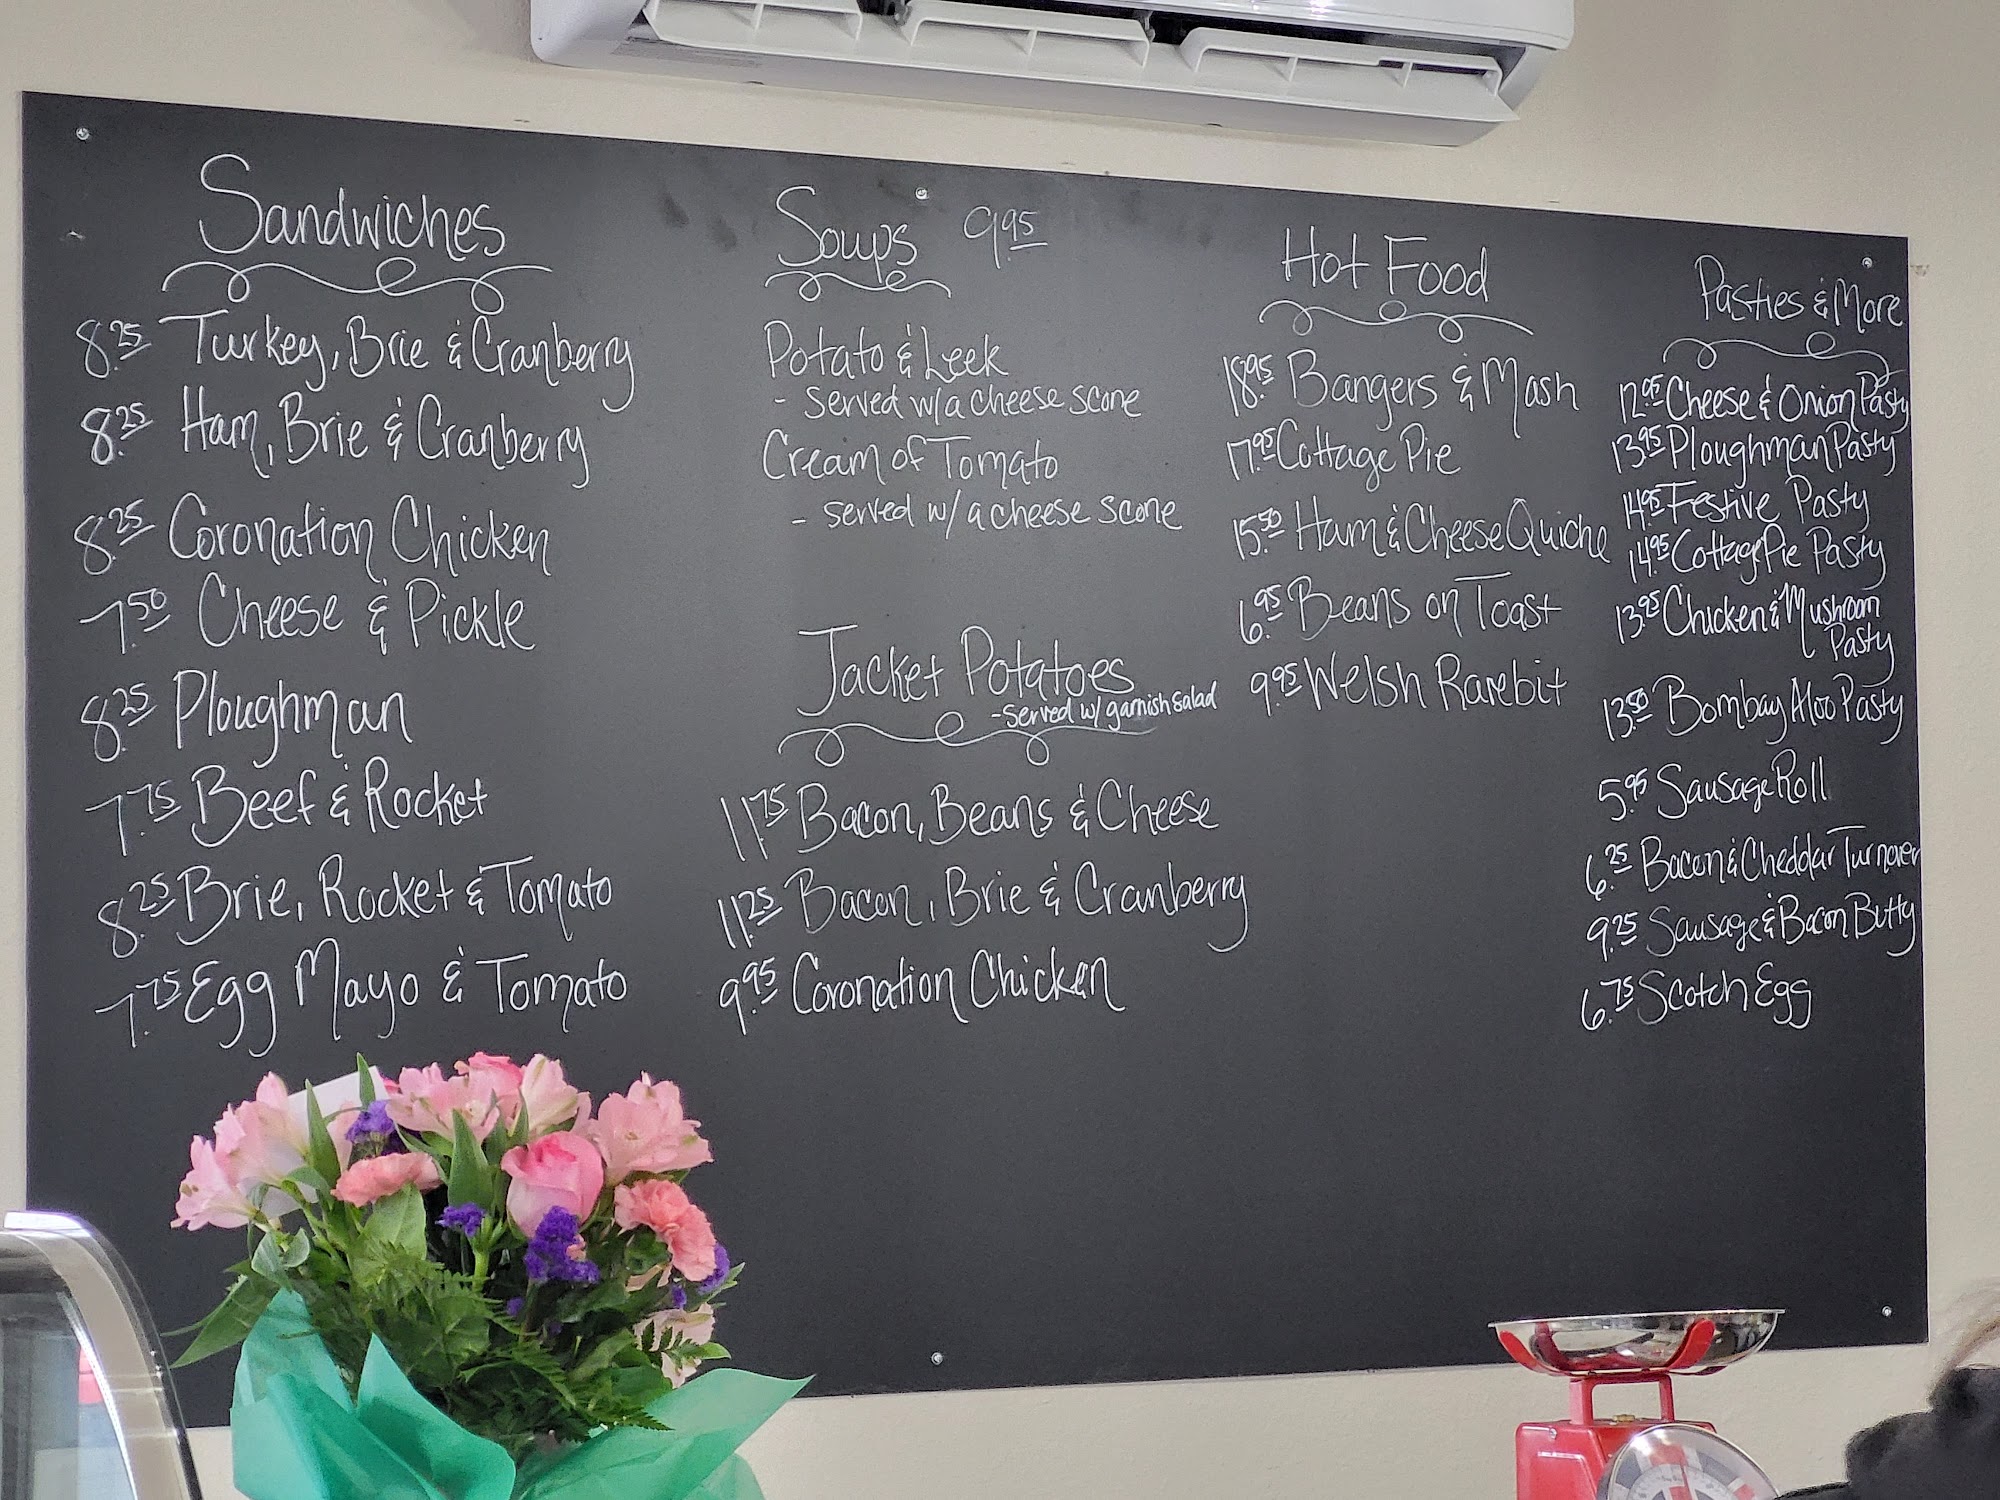 Sandwiches
8.25 Turkey, Brie & Cranberry
8.25 Ham, Brie & Cranberry
8.25 Coronation Chicken
7.50 Cheese & Pickle
8.25 Ploughman
7.75 Beef & Rocket
8.25 Brie, Rocket & Tomato
7.75 Egg Mayo & Tomato
Soups 9.95
Potato & Leek
- served w/a cheese scone
Cream of Tomato
- served w/a cheese scone
Jacket Potatoes
- Served w/ garnish salad
11.75 Bacon, Beans & Cheese
11.25 Bacon, Brie & Cranberry
9.95 Coronation Chicken
Hot Food
18.95 Bangers & Mash
17.95 Cottage Pie
15.50 Ham & Cheese Quiche
6.95 Beans on Toast
9.95 Welsh Rarebit
Pasties & More
12.95 Cheese & Onion Pasty
13.95 Ploughman Pasty
14.95 Festive Pasty
14.95 Cottage Pie Pasty
13.95 Chicken & Mushroom
Pasty
13.50 Bombay Aloo Pasty
5.95 Sausage Roll
6.25 Bacon & Cheddar Turnover
9.25 Sausage & Bacon Butty
6.75 Scotch Egg